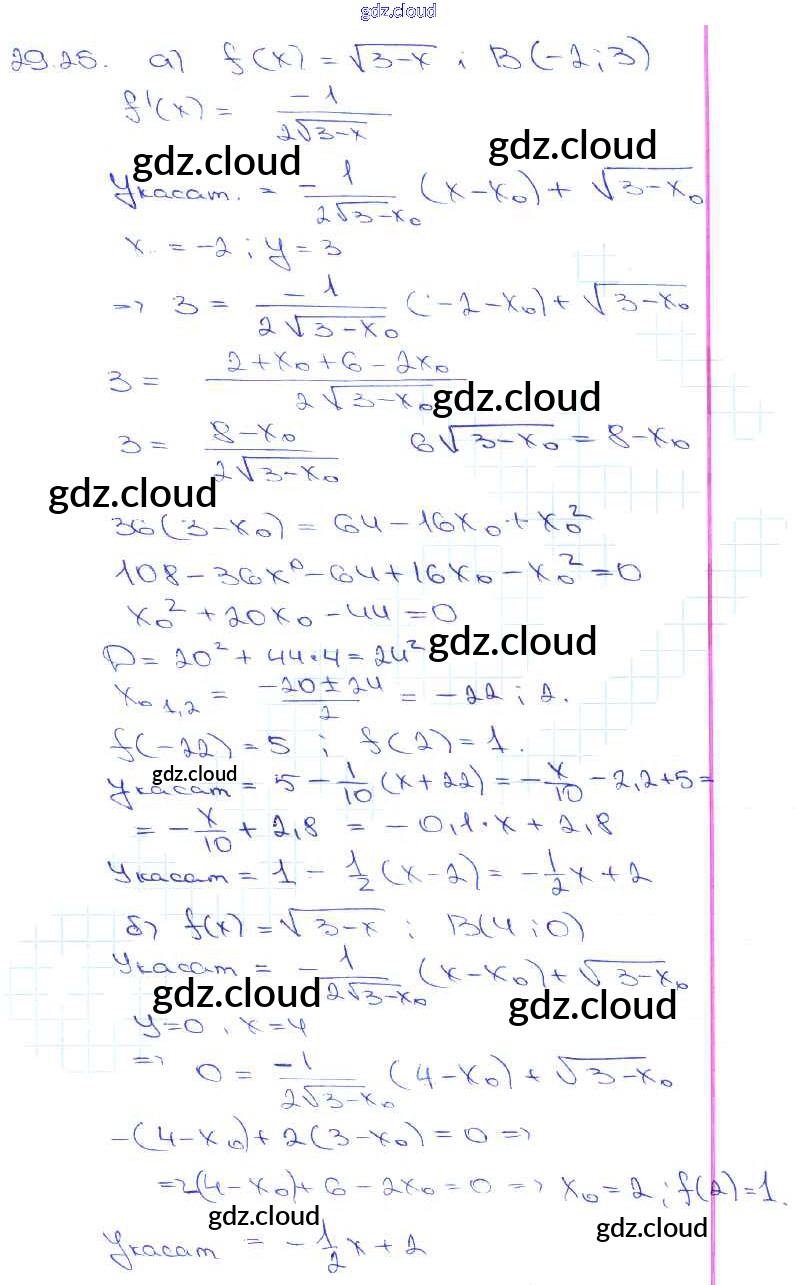 gdz.cloud
29.25. а) f(x) = √3-x ; B(-2;3)
f'(x) = -1 / 2√3-x
gdz.cloud gdz.cloud
Yкасат. = - 1 / 2√3-x₀ (x-x₀) + √3-x₀
x = -2 ; y = 3
=> 3 = -1 / 2√3-x₀ (-2-x₀) + √3-x₀
3 = 2+x₀+6-2x₀ / 2√3-x₀
gdz.cloud
3 = 8-x₀ / 2√3-x₀ 6√3-x₀ = 8-x₀
gdz.cloud
36(3-x₀) = 64-16x₀+x₀²
108-36x⁰-64+16x₀-x₀²=0
x₀²+20x₀-44=0
D=20²+44·4=24² gdz.cloud
x₀ ₁,₂ = -20±24 / 2 = -22 ; 2.
f(-22)=5 ; f(2)=1.
gdz.cloud
Yкасат = 5 - 1/10 (x+22) = - x/10 - 2,2+5 =
= - x/10 + 2,8 = -0,1·x + 2,8
Yкасат = 1 - 1/2 (x-2) = - 1/2 x + 2
б) f(x) = √3-x ; B(4;0)
Yкасат = - 1 / 2√3-x₀ (x-x₀) + √3-x₀
gdz.cloud gdz.cloud
y=0, x=4
=> 0 = -1 / 2√3-x₀ (4-x₀) + √3-x₀
-(4-x₀)+2(3-x₀)=0 =>
=>-(4-x₀)+6-2x₀=0 => x₀=2 ; f(2)=1.
gdz.cloud gdz.cloud
Yкасат = - 1/2 x + 2